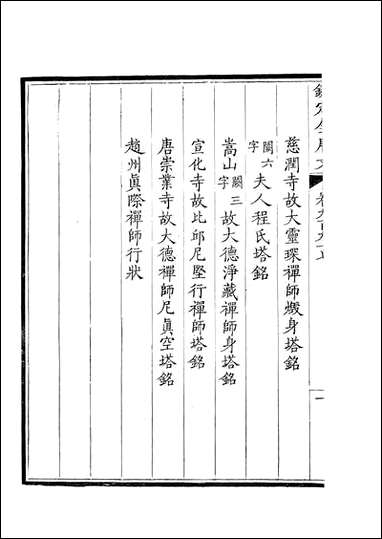 慈潤寺故大靈琛禪師煅身塔銘
闕六字夫人程氏塔銘
嵩山闕三字故大德淨藏禪師身塔銘
宣化寺故比邱尼堅行禪師塔銘
唐崇業寺故大德禪師尼眞空塔銘
趙州眞際禪師行狀